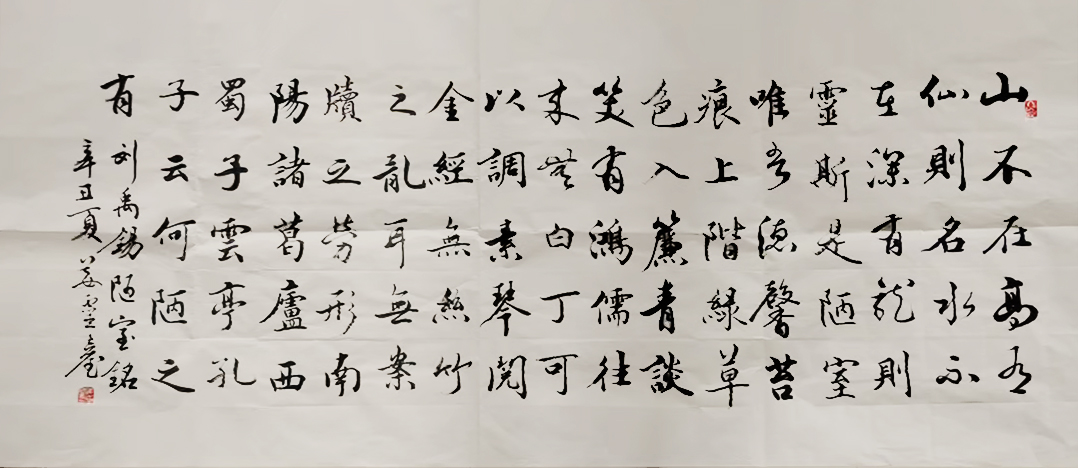 山不在高有
仙則名水不
在深有龍則
靈斯是陋室
唯吾德馨苔
痕上階緑草
色入簾青談
笑有鴻儒往
来無白丁可
以調素琴閲
金經無絲竹
之亂耳無案
牘之勞形南
陽諸葛廬西
蜀子雲亭孔
子云何陋之
有
劉禹錫陋室銘
辛丑夏